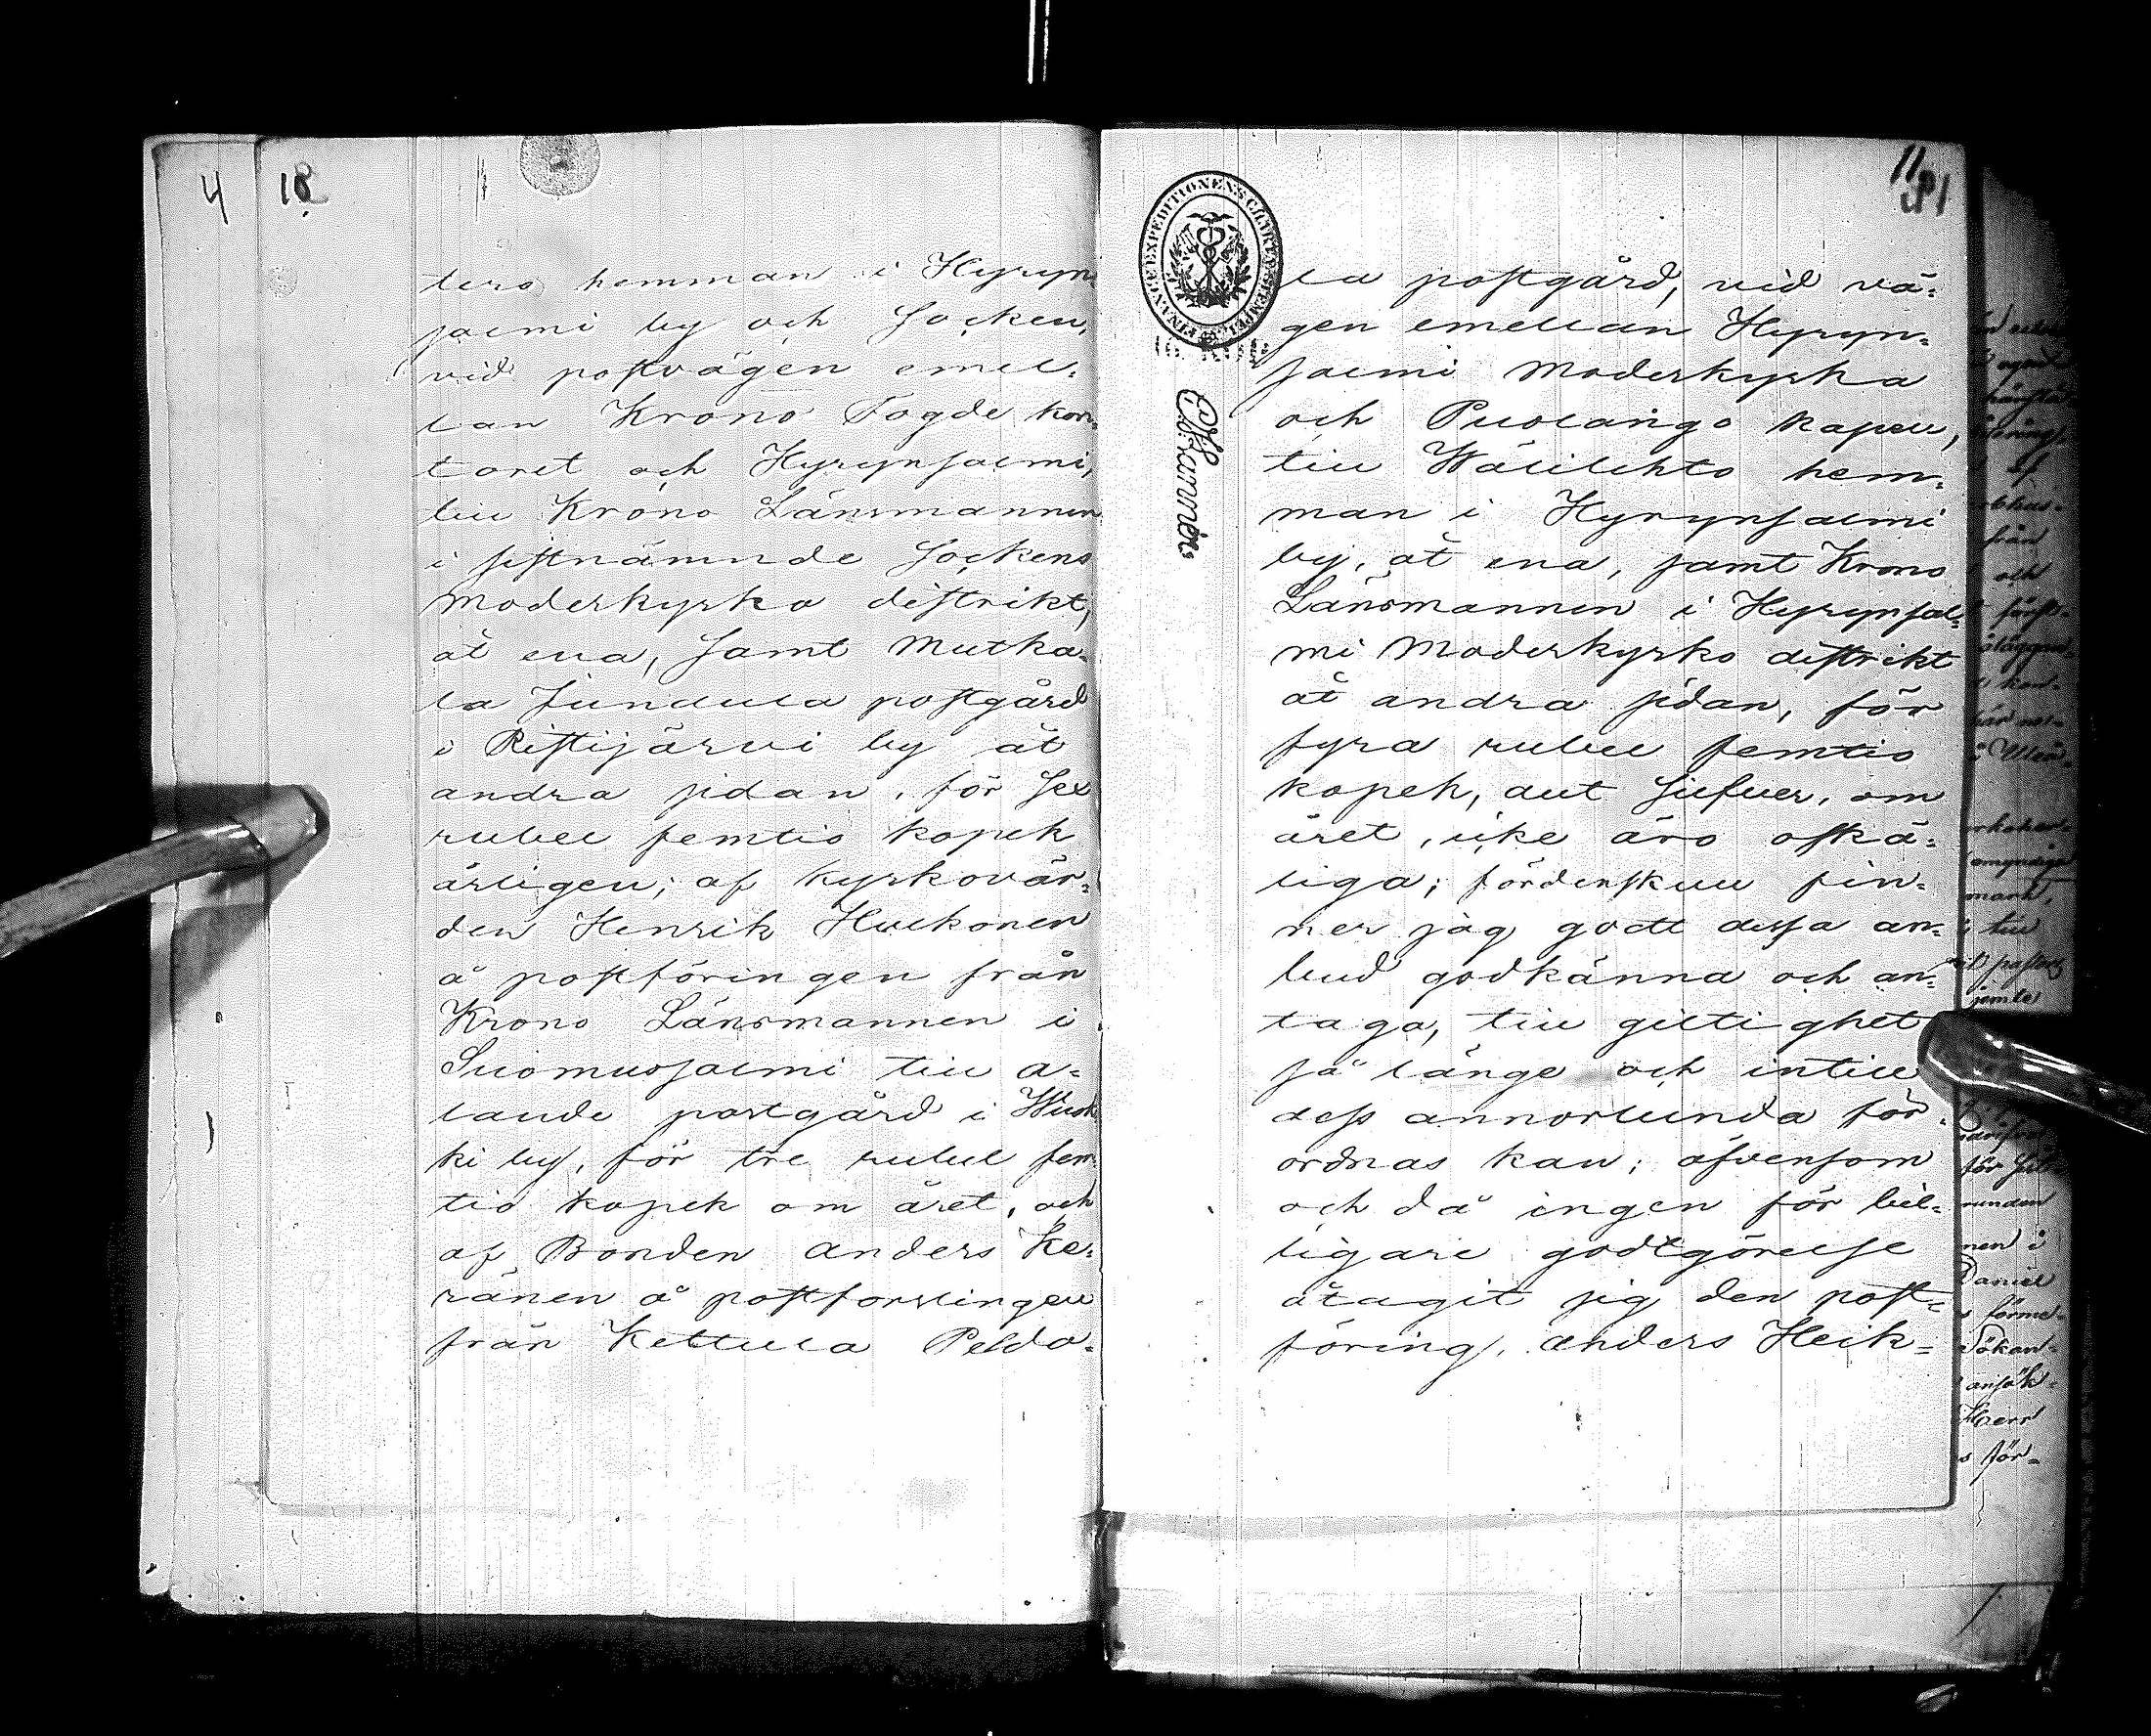 4 10
ters hemman i Hyryn-
salmi by och Socken,
vid postvägen emel-
lan Krono Fogde kon-
toret och Hyrynsalmi,
till Krono Länsmannen
i sistnämnde Sockens
Moderkyrko distrikt,
åt ena, samt Mutka-
la Jundula postgård
i Ristijärvi by åt
andra sidan, för Sex
rubel femtio kopek
årligen; af Kyrkovär-
den Henrik Huckonen
å postföringen från
Krono Länsmannen i
Suomussalmi till a-
lande postgård i
ki by, för tre rubel fem-
tio kopek om året, och
af Bonden Anders Ke-
ränen å postforslingen
från Kettula Peldo-
11
FINANCE EXPEDITIONENS CHARTE STEMPEL
la postgård, vid vä-
gen emellan Hyryn-
salmi Moderkyrka
och Puolango kapell,
till Wälilehto hem-
man i Hyrynsalmi
by, åt ena, samt Krono
Länsmannen i Hyrynsal-
mi Moderkyrko distrikt
åt andra sidan, för
fyra rubel femtio
kopek, allt Silfver, om
året, icke äro oskä-
liga; fördenskull fin-
ner jag godt dessa an-
bud godkänna och an-
taga, till giltighet
så länge och intill
dess annorlunda för-
ordnas kan; äfvensom
och då ingen för bil-
ligare godtgörelse
åtagit sig den post-
föring, Anders Heik-